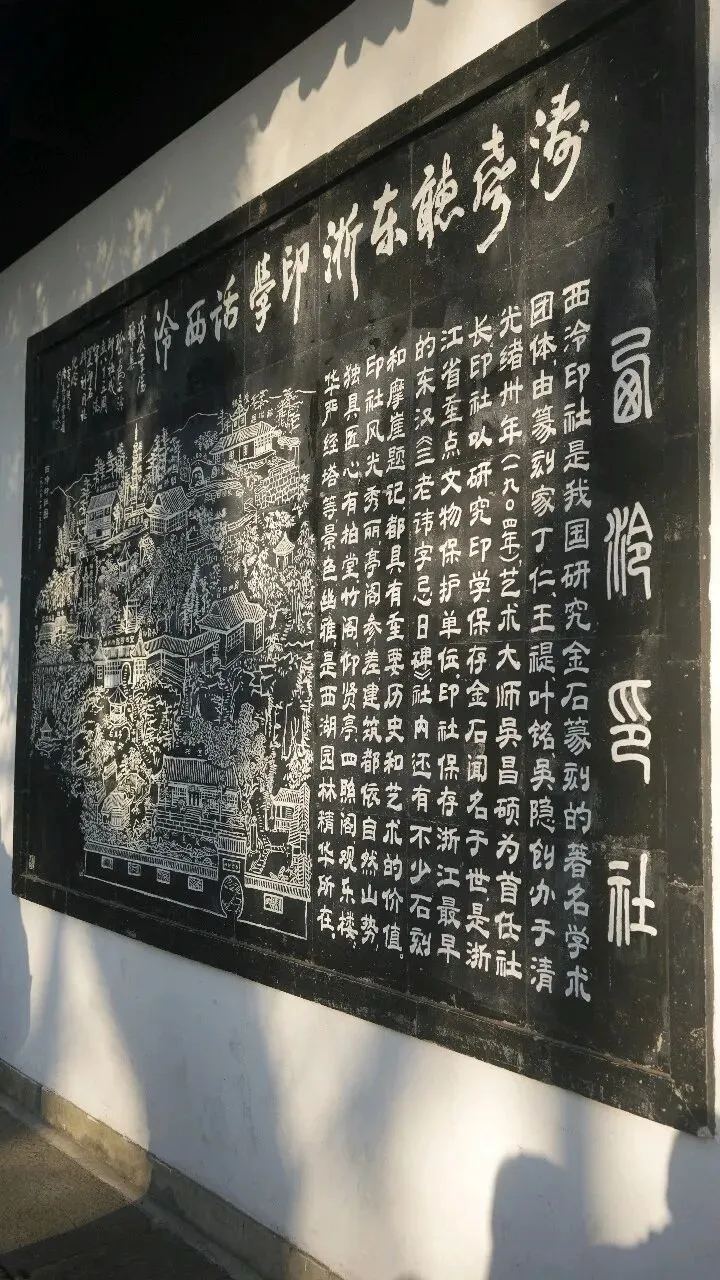 西泠印社
西泠印社是我国研究金石篆刻的著名学术
团体，由篆刻家丁仁、王禔、叶铭、吴隐创办于清
光绪卅年(一九〇四年)艺术大师吴昌硕为首任社
长，印社以研究印学保存金石闻名于世是浙
江省重点文物保护单位，印社保存浙江最早
的东汉《三老讳字忌日碑》社内还有不少石刻
和摩崖题记都具有重要历史和艺术的价值。
印社风光秀丽亭阁参差建筑都依自然山势
独具匠心有柏堂竹阁，仰贤亭，四照阁，观乐楼，
华严经塔等，景色幽雅是西湖园林精华所在。
涛声听东浙印学话西泠